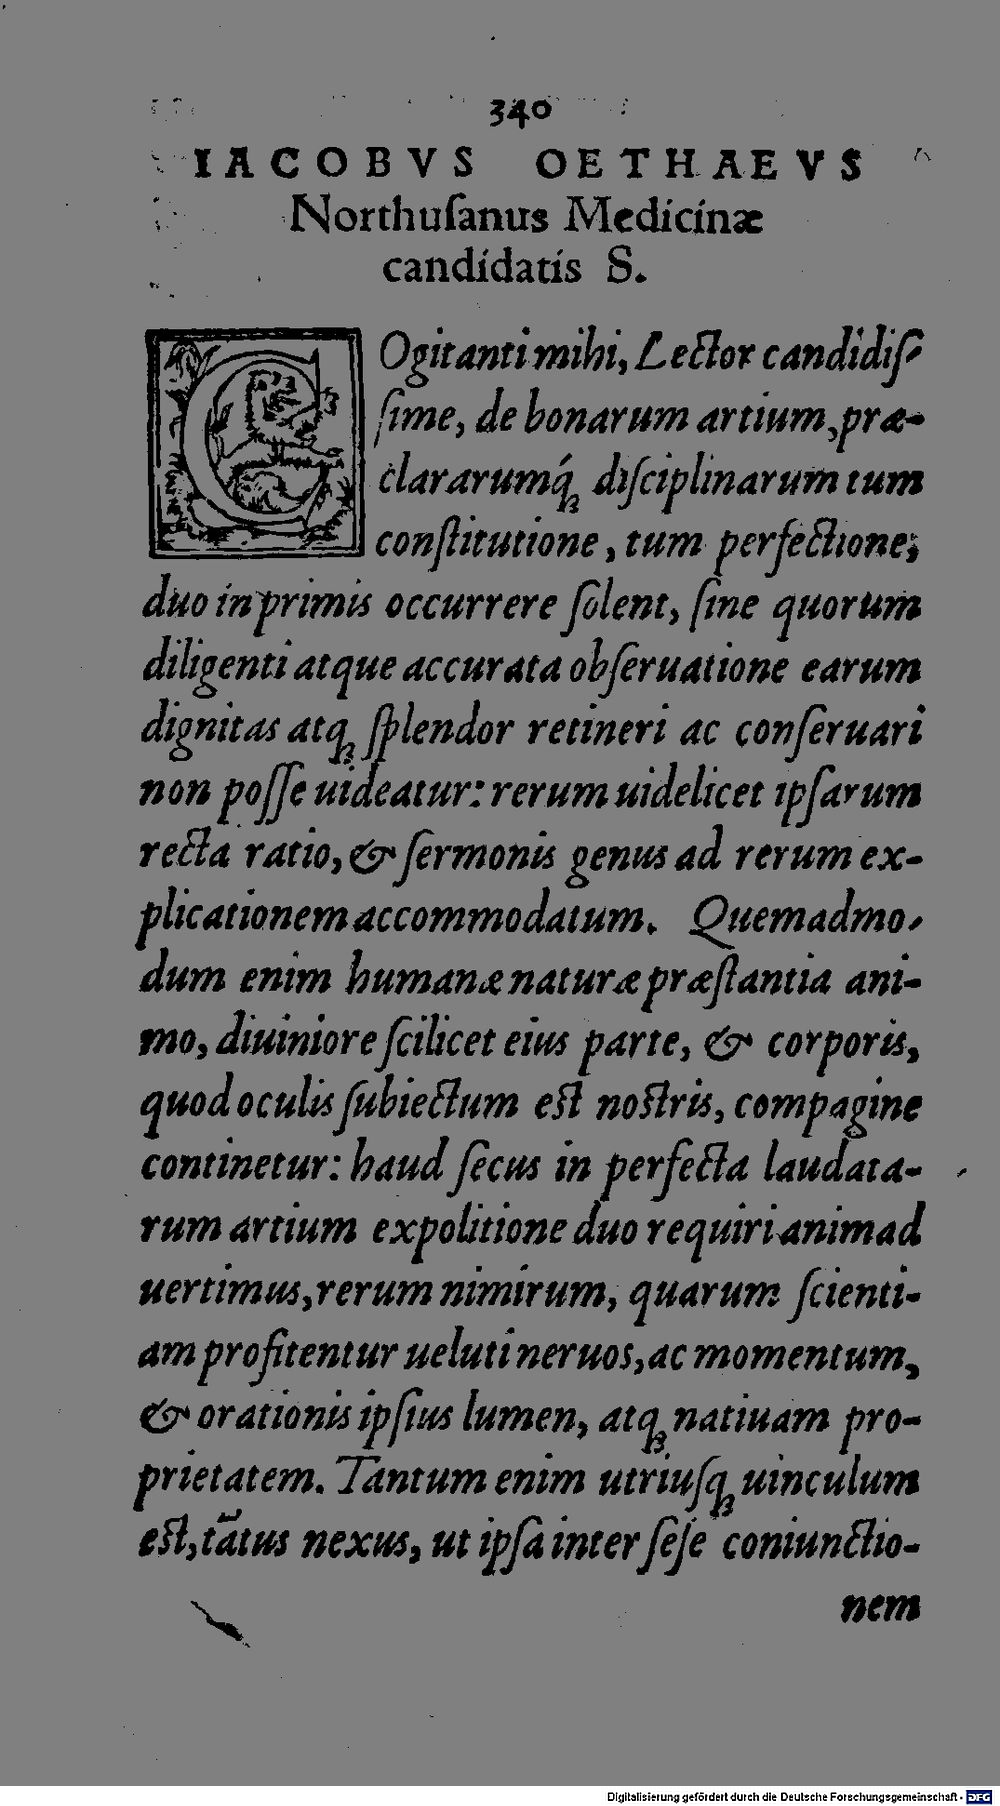 340
IACOBVS OETHAEVS
Northuſanus Medicinæ
candidatis S.
COgitanti mihi, Lector candidiſ-
ſime, de bonarum artium, præ-
clararumq́ꝫ diſciplinarum tum
conſtitutione, tum perfectione,
duo inprimis occurrere ſolent, ſine quorum
diligenti atque accurata obſeruatione earum
dignitas atqꝫ ſplendor retineri ac conſeruari
non poſſe uideatur: rerum uidelicet ipſarum
recta ratio, & ſermonis genus ad rerum ex-
plicationem accommodatum. Quemadmo-
dum enim humanæ naturæ præſtantia ani-
mo, diuiniore ſcilicet eius parte, & corporis,
quod oculis ſubiectum est nostris, compagine
continetur: haud ſecus in perfecta laudata-
rum artium expolitione duo requiri animad
uertimus, rerum nimirum, quarum ſcienti-
am profitentur ueluti neruos, ac momentum,
& orationis ipſius lumen, atqꝫ natiuam pro-
prietatem. Tantum enim utriuſqꝫ uinculum
est, tãtus nexus, ut ipſa inter ſeſe coniunctio-
nem
Digitalisierung gefördert durch die Deutsche Forschungsgemeinschaft - DFG